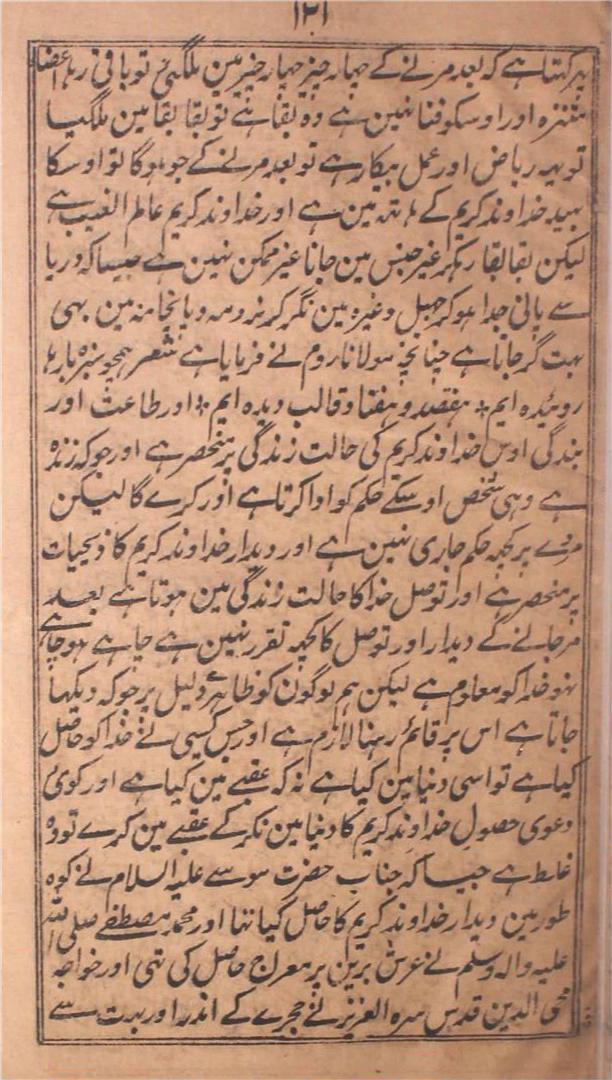 ۱۲۱
پر کہتا ہے کہ بعد مرنے کے جہانہ چیز جہانہ چیز مین ملگئی تو باقی رہا اعضاء
متنزہ اور اوسکو فنا نہین ہے وہ بقا ہے تو بقا بقا مین ملگیا
تو یہہ ریاض اور عمل بیکار ہے تو بعد مرنے کے جو ہوگا تو اوسکا
بہید خداوند کریم کے ہاتہہ مین ہے اور خداوند کریم عالم الغیب ہے
لیکن بقا لقا رہکر غیر جنس مین جانا غیر ممکن نہین ہے جیسا کہ دریا
سے پانی جدا ہوکر جہیل وغیرہ مین نگر کر نردمہ و پائخانہ مین بہی
بہت گر جاتا ہے چنانچہ مولانا روم نے فرمایا ہے شعر ہمچو سبزہ بارہا
روئیدہ ایم ٭ ہفصد و ہفتاد قالب دیدہ ایم ٭ اور طاعت اور
بندگی اوس خداوند کریم کی حالت زندگی پر منحصر ہے اور جو کہ زندہ
ہے وہی شخص اوسکے حکم کو ادا کرتا ہے اور کرے گا لیکن
مردے پر کچہہ حکم جاری نہین ہے اور دیدار خداوند کریم کا ذیحیات
پر منحصر ہے اور توصل خدا کا حالت زندگی مین ہوتا ہے بعد
مر جانے کے دیدار اور توصل کا کچہہ تقرر نہین ہے چاہے ہو چاہے
نہو خدا کو معلوم ہے لیکن ہم لوگون کو ظاہر دلیل پر جو کہ دیکہا
جاتا ہے اس پر قائم رہنا لازم ہے اور جس کسی نے خدا کو حاصل
کیا ہے تو اسی دنیا مین کیا ہے نہ کہ عقبے مین کیا ہے اور کوئی
دعوی حصول خداوند کریم کا دنیا مین نکر کے عقبے مین کرے تو وہ
غلط ہے جیسا کہ جناب حضرت موسے علیہ السلام نے کوہ
طور مین دیدار خداوند کریم کا حاصل کیا تہا اور محمد مصطفے صلی اللہ
علیہ والہ وسلم نے عرش برین پر معراج حاصل کی تہی اور خواجہ
محی الدین قدس سرہ العزیز نے حجرے کے اندر اور بدت سے